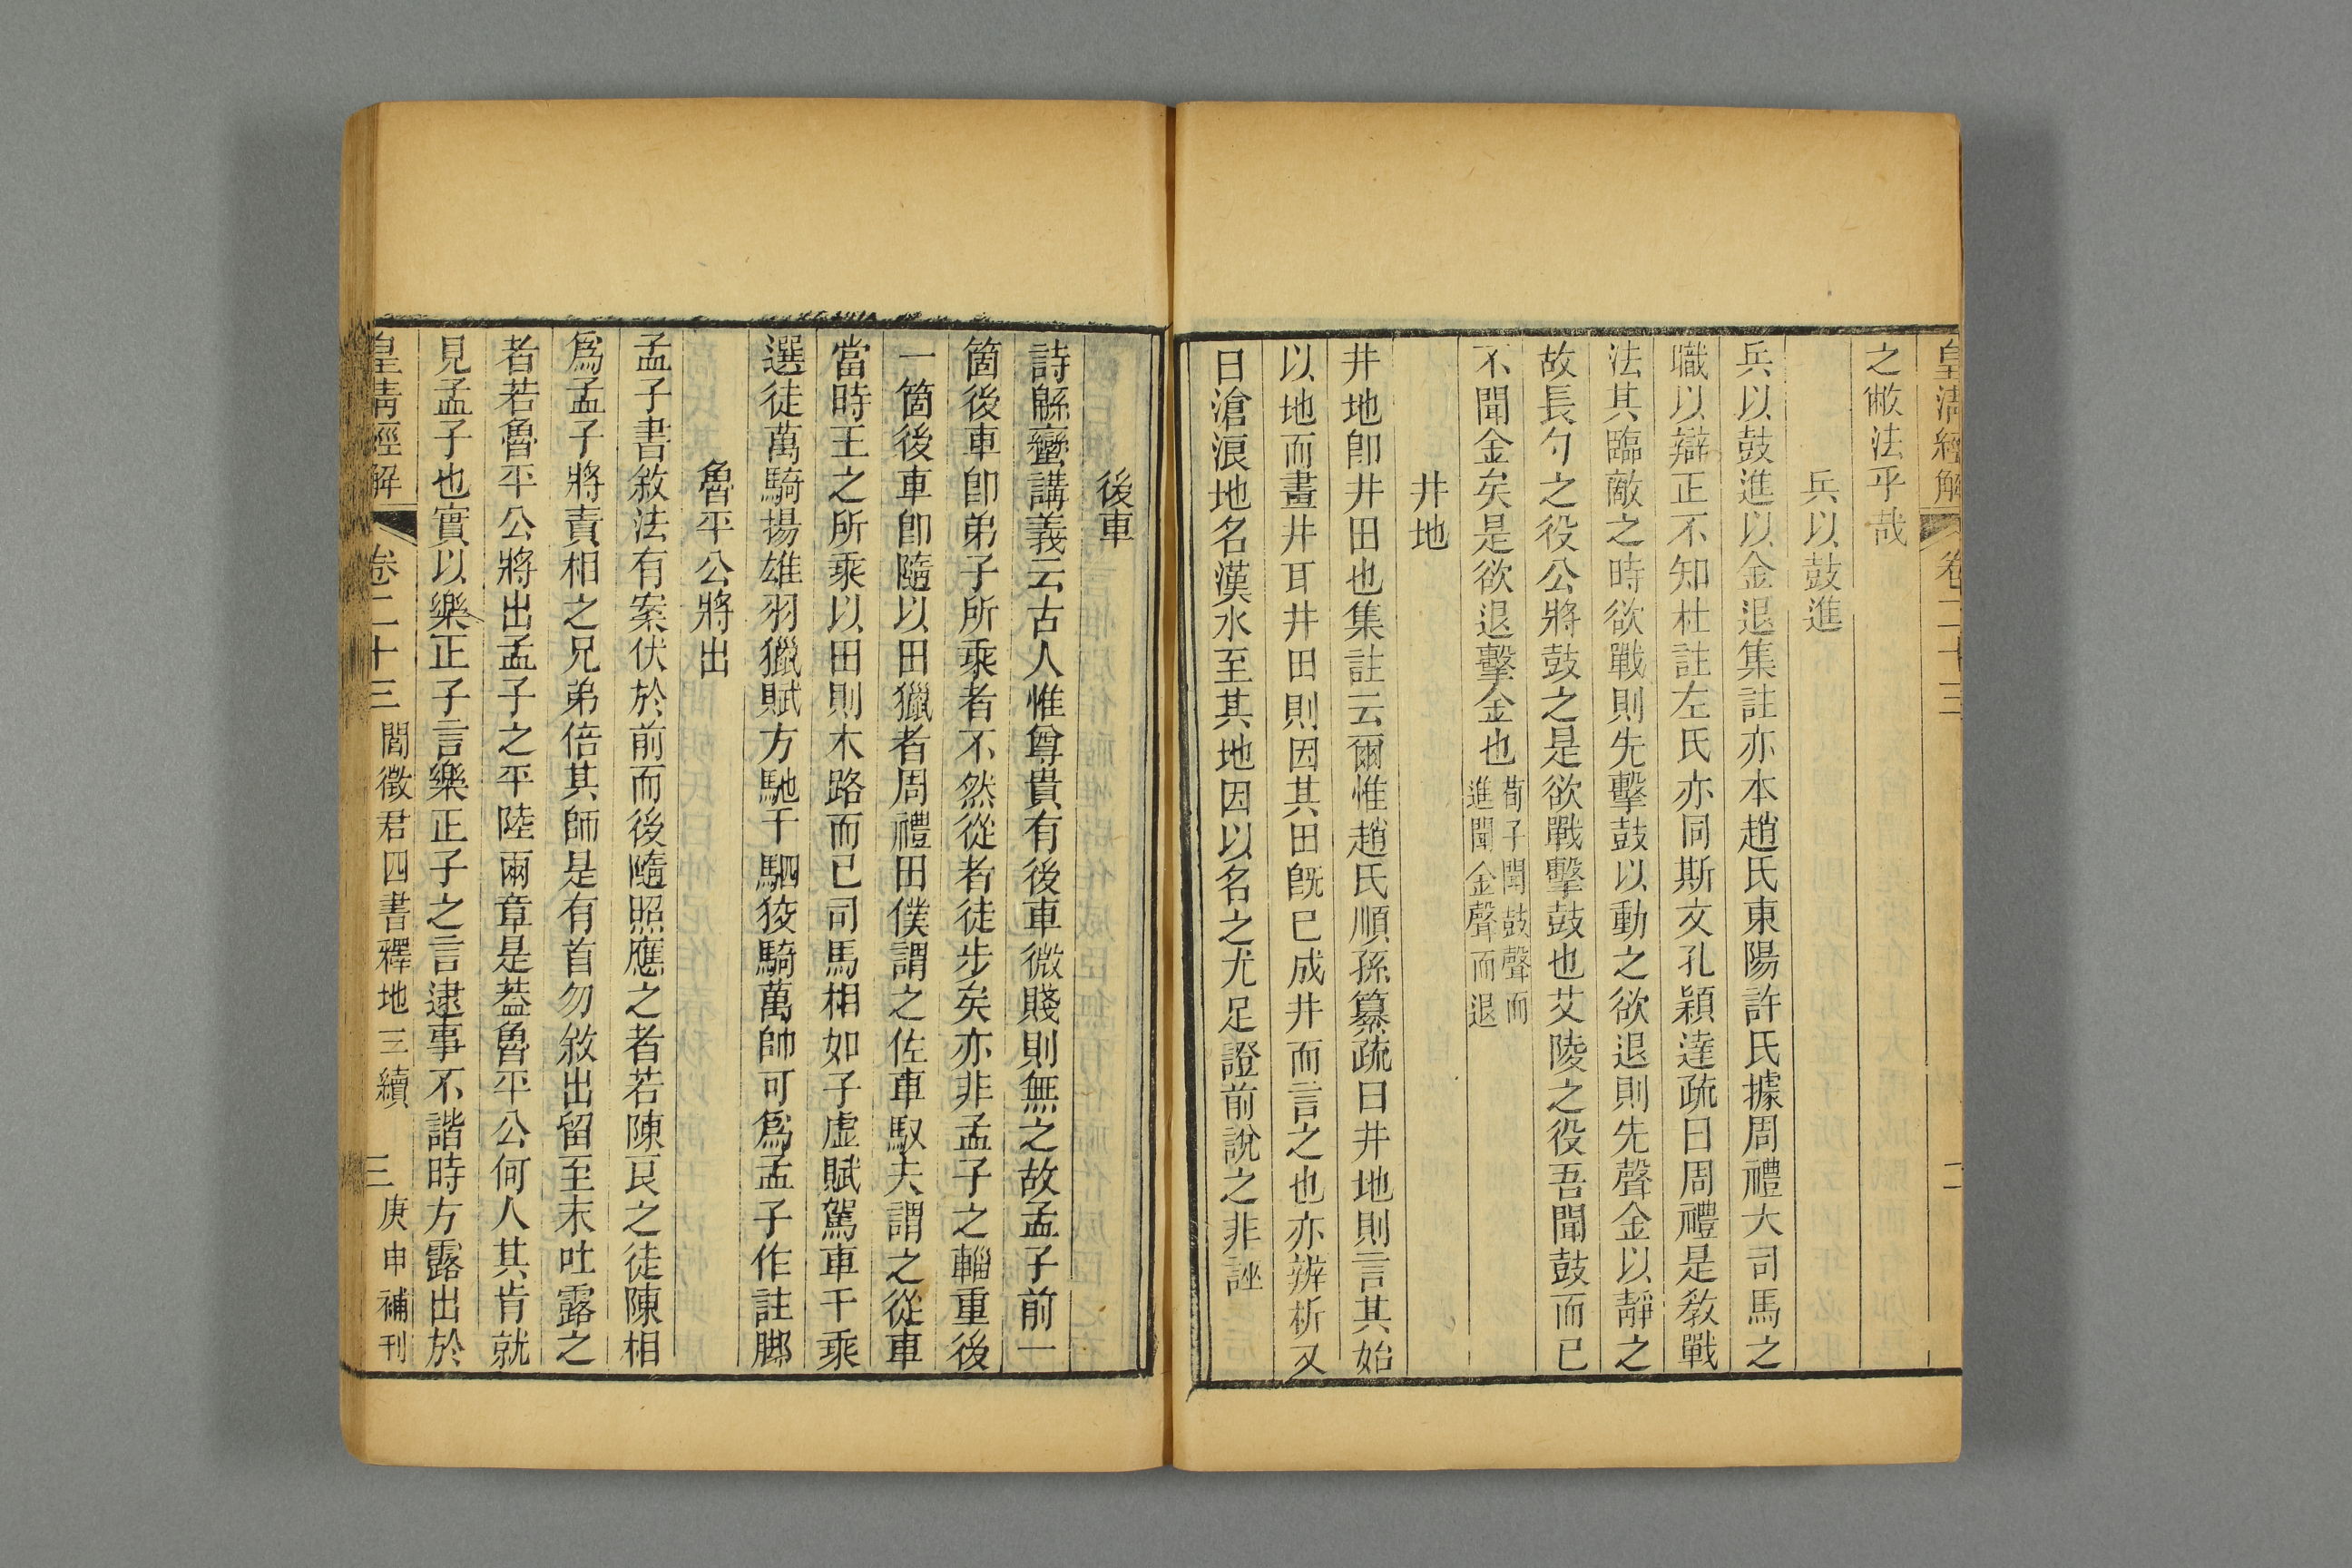 皇清經解 卷二十三 二
之敝法乎哉
兵以鼓進
兵以鼓進以金退集註亦本趙氏東陽許氏據周禮大司馬之
職以辯正不知杜註左氏亦同斯文孔穎達疏曰周禮是敎戰
法其臨敵之時欲戰則先擊鼓以動之欲退則先聲金以靜之
故長勺之役公將鼓之是欲戰擊鼓也艾陵之役吾聞鼓而已
不聞金矣是欲退擊金也荀子聞鼓聲而進聞金聲而退
井地
井地卽井田也集註云爾惟趙氏順孫纂疏曰井地則言其始
以地而畫井耳井田則因其田旣已成井而言之也亦辨析又
曰滄浪地名漢水至其地因以名之尤足證前說之非誣
後車
詩緜蠻講義云古人惟尊貴有後車微賤則無之故孟子前一
箇後車卽弟子所乘者不然從者徒步矣亦非孟子之輜重後
一箇後車卽隨以田獵者周禮田僕謂之佐車馭夫謂之從車
當時王之所乘以田則木路而已司馬相如子虛賦駕車千乘
選徒萬騎揚雄羽獵賦方馳千駟狡騎萬帥可爲孟子作註脚
魯平公將出
孟子書敘法有案伏於前而後隨照應之者若陳良之徒陳相
爲孟子將責相之兄弟倍其師是有首勿敘出留至末吐露之
者若魯平公將出孟子之平陸兩章是葢魯平公何人其肯就
見孟子也實以樂正子言樂正子之言逮事不諧時方露出於
皇清經解 卷二十三 閻徵君四書釋地三續 三 庚申補刊